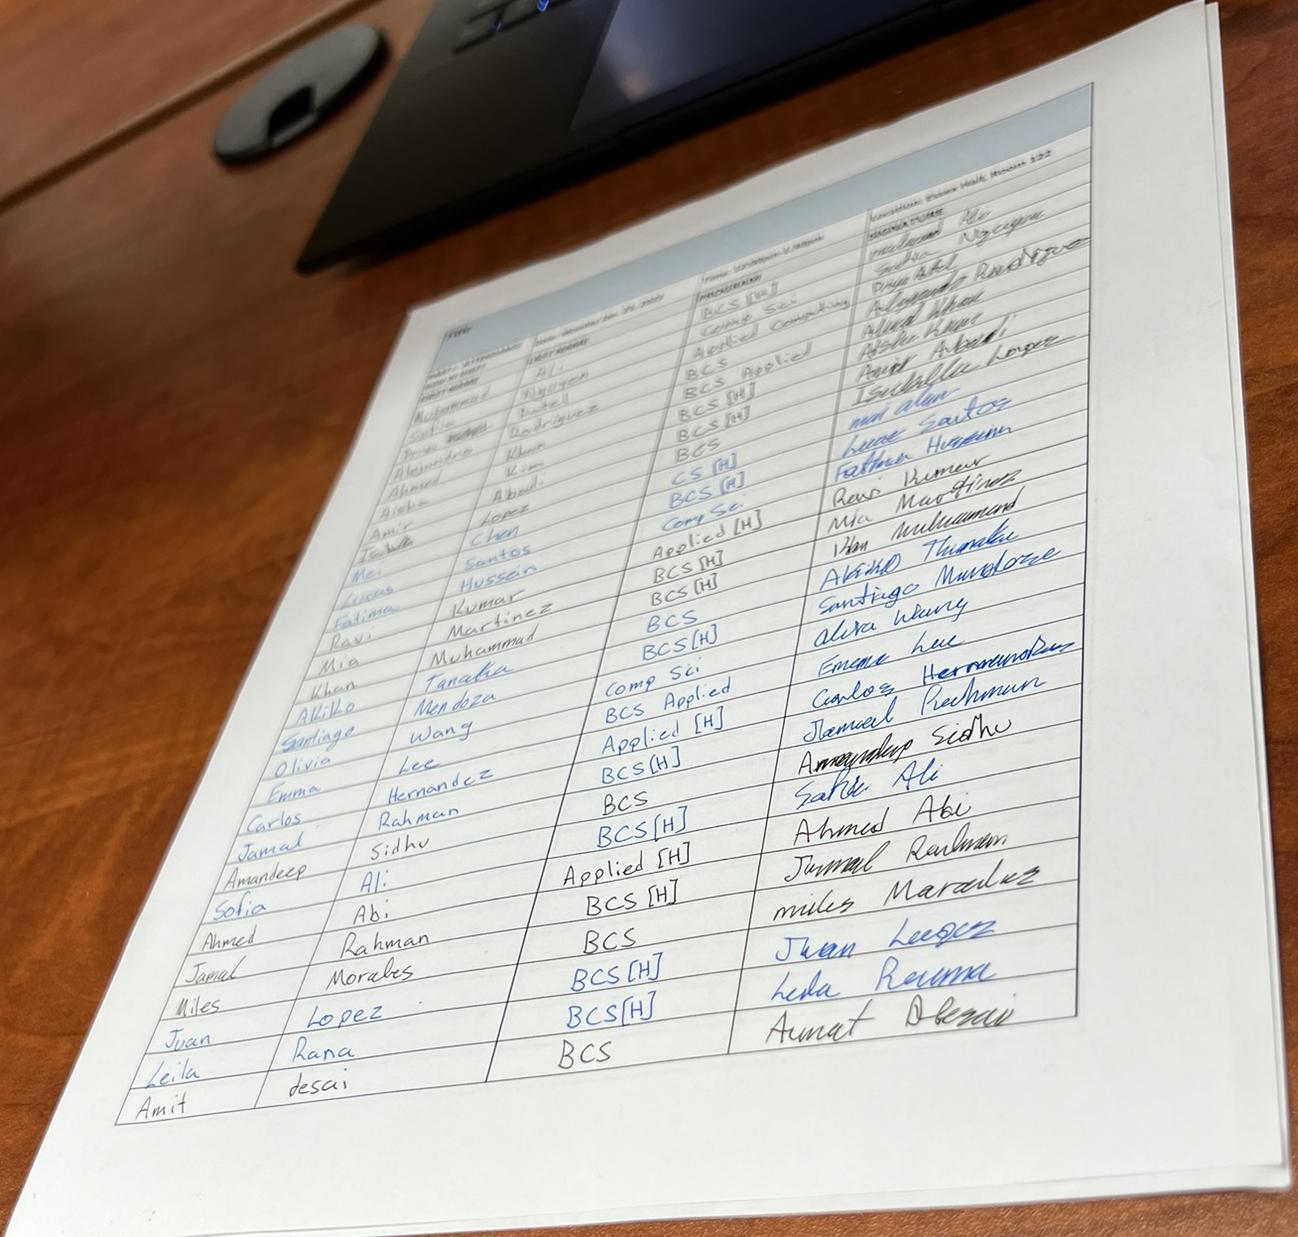 FIRST NAME LAST NAME PROGRAM SIGNATURE
Muhammad Ali BCS [H] Ali
Sofia Nguyen Comp Sci Sofia Nguyen
Priya Patel Applied Computing Priya Patel
Alejandro Rodriguez BCS Alejandro Rodriguez
Ahmed Khan BCS Applied Ahmed Khan
Aisha Kim BCS [H] Aisha Kim
Amir Abadi BCS [H] Amir Abadi
Isabella Lopez BCS Isabella Lopez
Mei Chen CS [H]
Lucas Santos BCS [H] Lucas Santos
Fatima Hussein Comp Sci Fatima Hussein
Ravi Kumar Applied [H] Ravi Kumar
Mia Martinez BCS [H] Mia Martinez
Khan Muhammad BCS [H] Khan Muhammad
Akiko Tanaka BCS Akiko
Santiago Mendoza BCS [H] Santiago Mendoza
Olivia Wang Comp Sci Wang
Emma Lee BCS Applied Emma Lee
Carlos Hernandez Applied [H] Carlos
Jamal Rahman BCS [H] Jamal Rahman
Amandeep Sidhu BCS Amandeep Sidhu
Sofia Ali BCS [H] Ali
Ahmed Abi Applied [H] Ahmed Abi
Jamal Rahman BCS [H] Jamal
Miles Morales BCS miles
Juan Lopez BCS [H] Juan
Leila Rana BCS [H]
Amit desai BCS